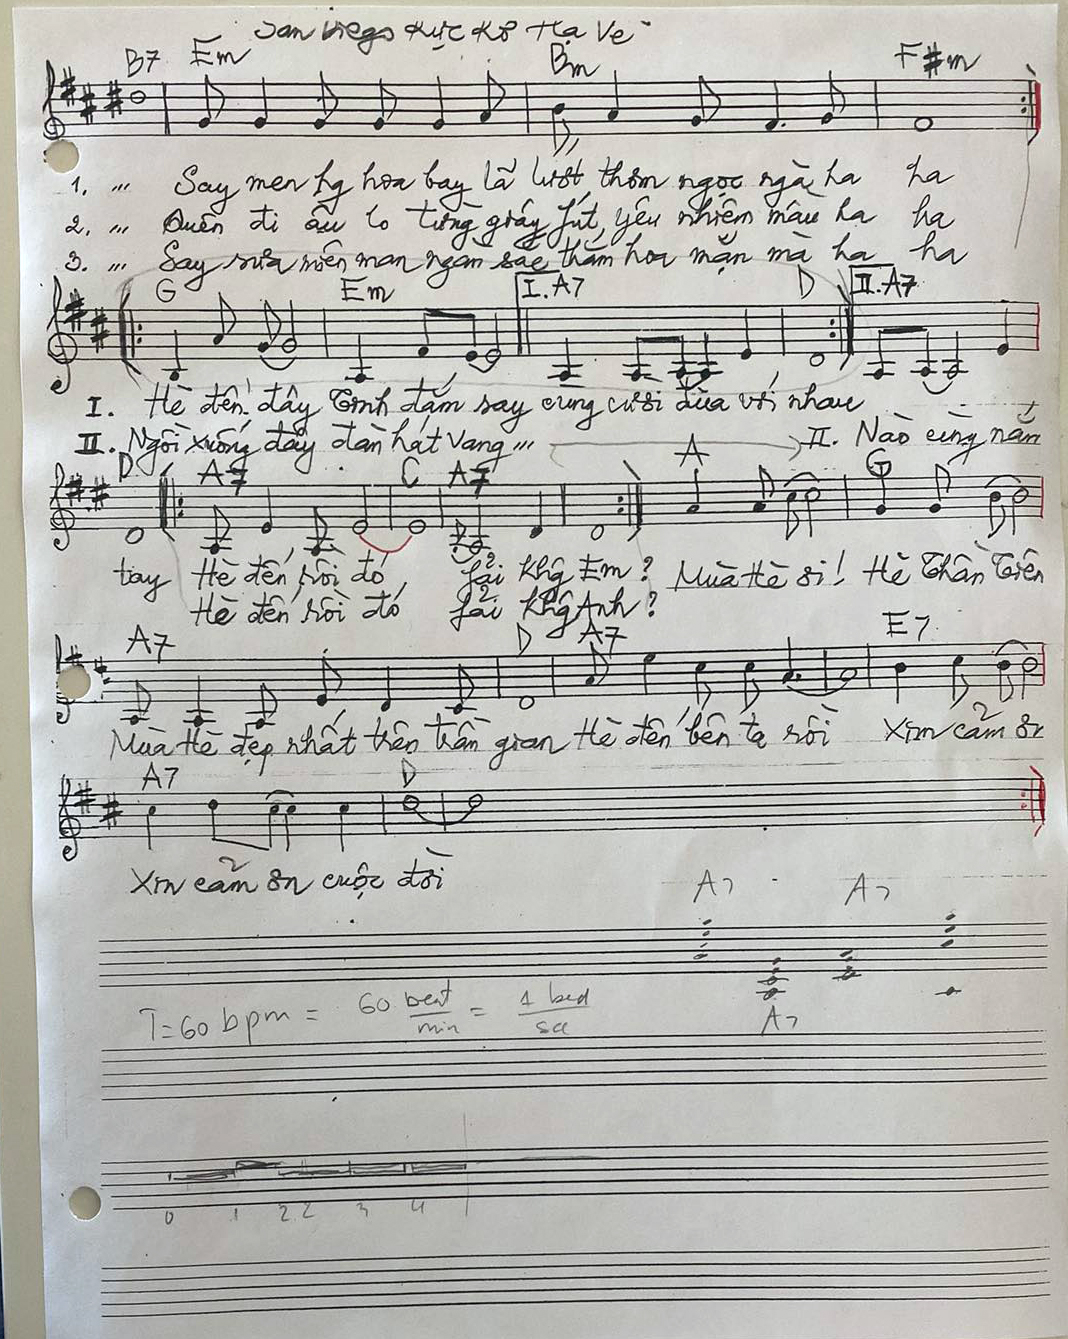 San Diego Rực Rỡ Hạ Về
B7 Em Bm F#m
1. ,,, Say men hg hoa bay lã lướt, thơm ngọc ngà ha ha
2. ,,, Quên đi âu lo từng giây fút, yêu nhiệm mầu ha ha
3. ,,, Say sưa miên man ngàn sắc thắm hoa mặn mà ha ha
G Em I. A7 D II. A7
I. Hè đến đây Tình đắm say cùng cười đùa với nhau
II. Ngồi xuống đây đàn hát vang ,,, II. Nào cùng nắm
D A7 C A7 A G
tay Hè đến rồi đó fải khg Em? Mùa Hè ơi! Hè Thần Tiên
Hè đến rồi đó fải khg Anh?
A7 D A7 E7
Mùa Hè đẹp nhất trên trần gian Hè đến bên ta rồi Xin cảm ơn
A7 D
Xin cảm ơn cuộc đời
A7 A7
T=60 bpm = 60 beat/min = 1 /sec
A7
0 1 2 2.2 3 4